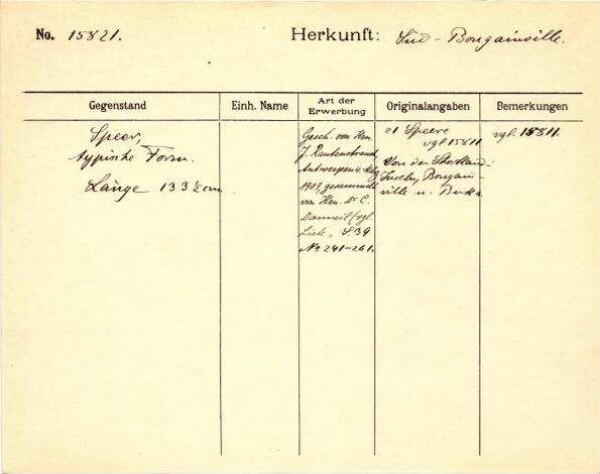 No. 15821.
Herkunft: Süd-Bougainville.
Gegenstand
Einh. Name
Art der Erwerbung
Originalangaben
Bemerkungen
Speer,
typische Form.
Länge 133½ cm.
Gesch. von Hrn.
J. Rautenstrauch,
Antwerpen
1903, gesammelt
von Hrn. Dr. C.
Danneil (vgl.
Liste S. 39
No 241-261.
21 Speere
vgl. 15811
Von den Shortland-
Inseln, Bougain-
ville u. Buka.
vgl. 15811.